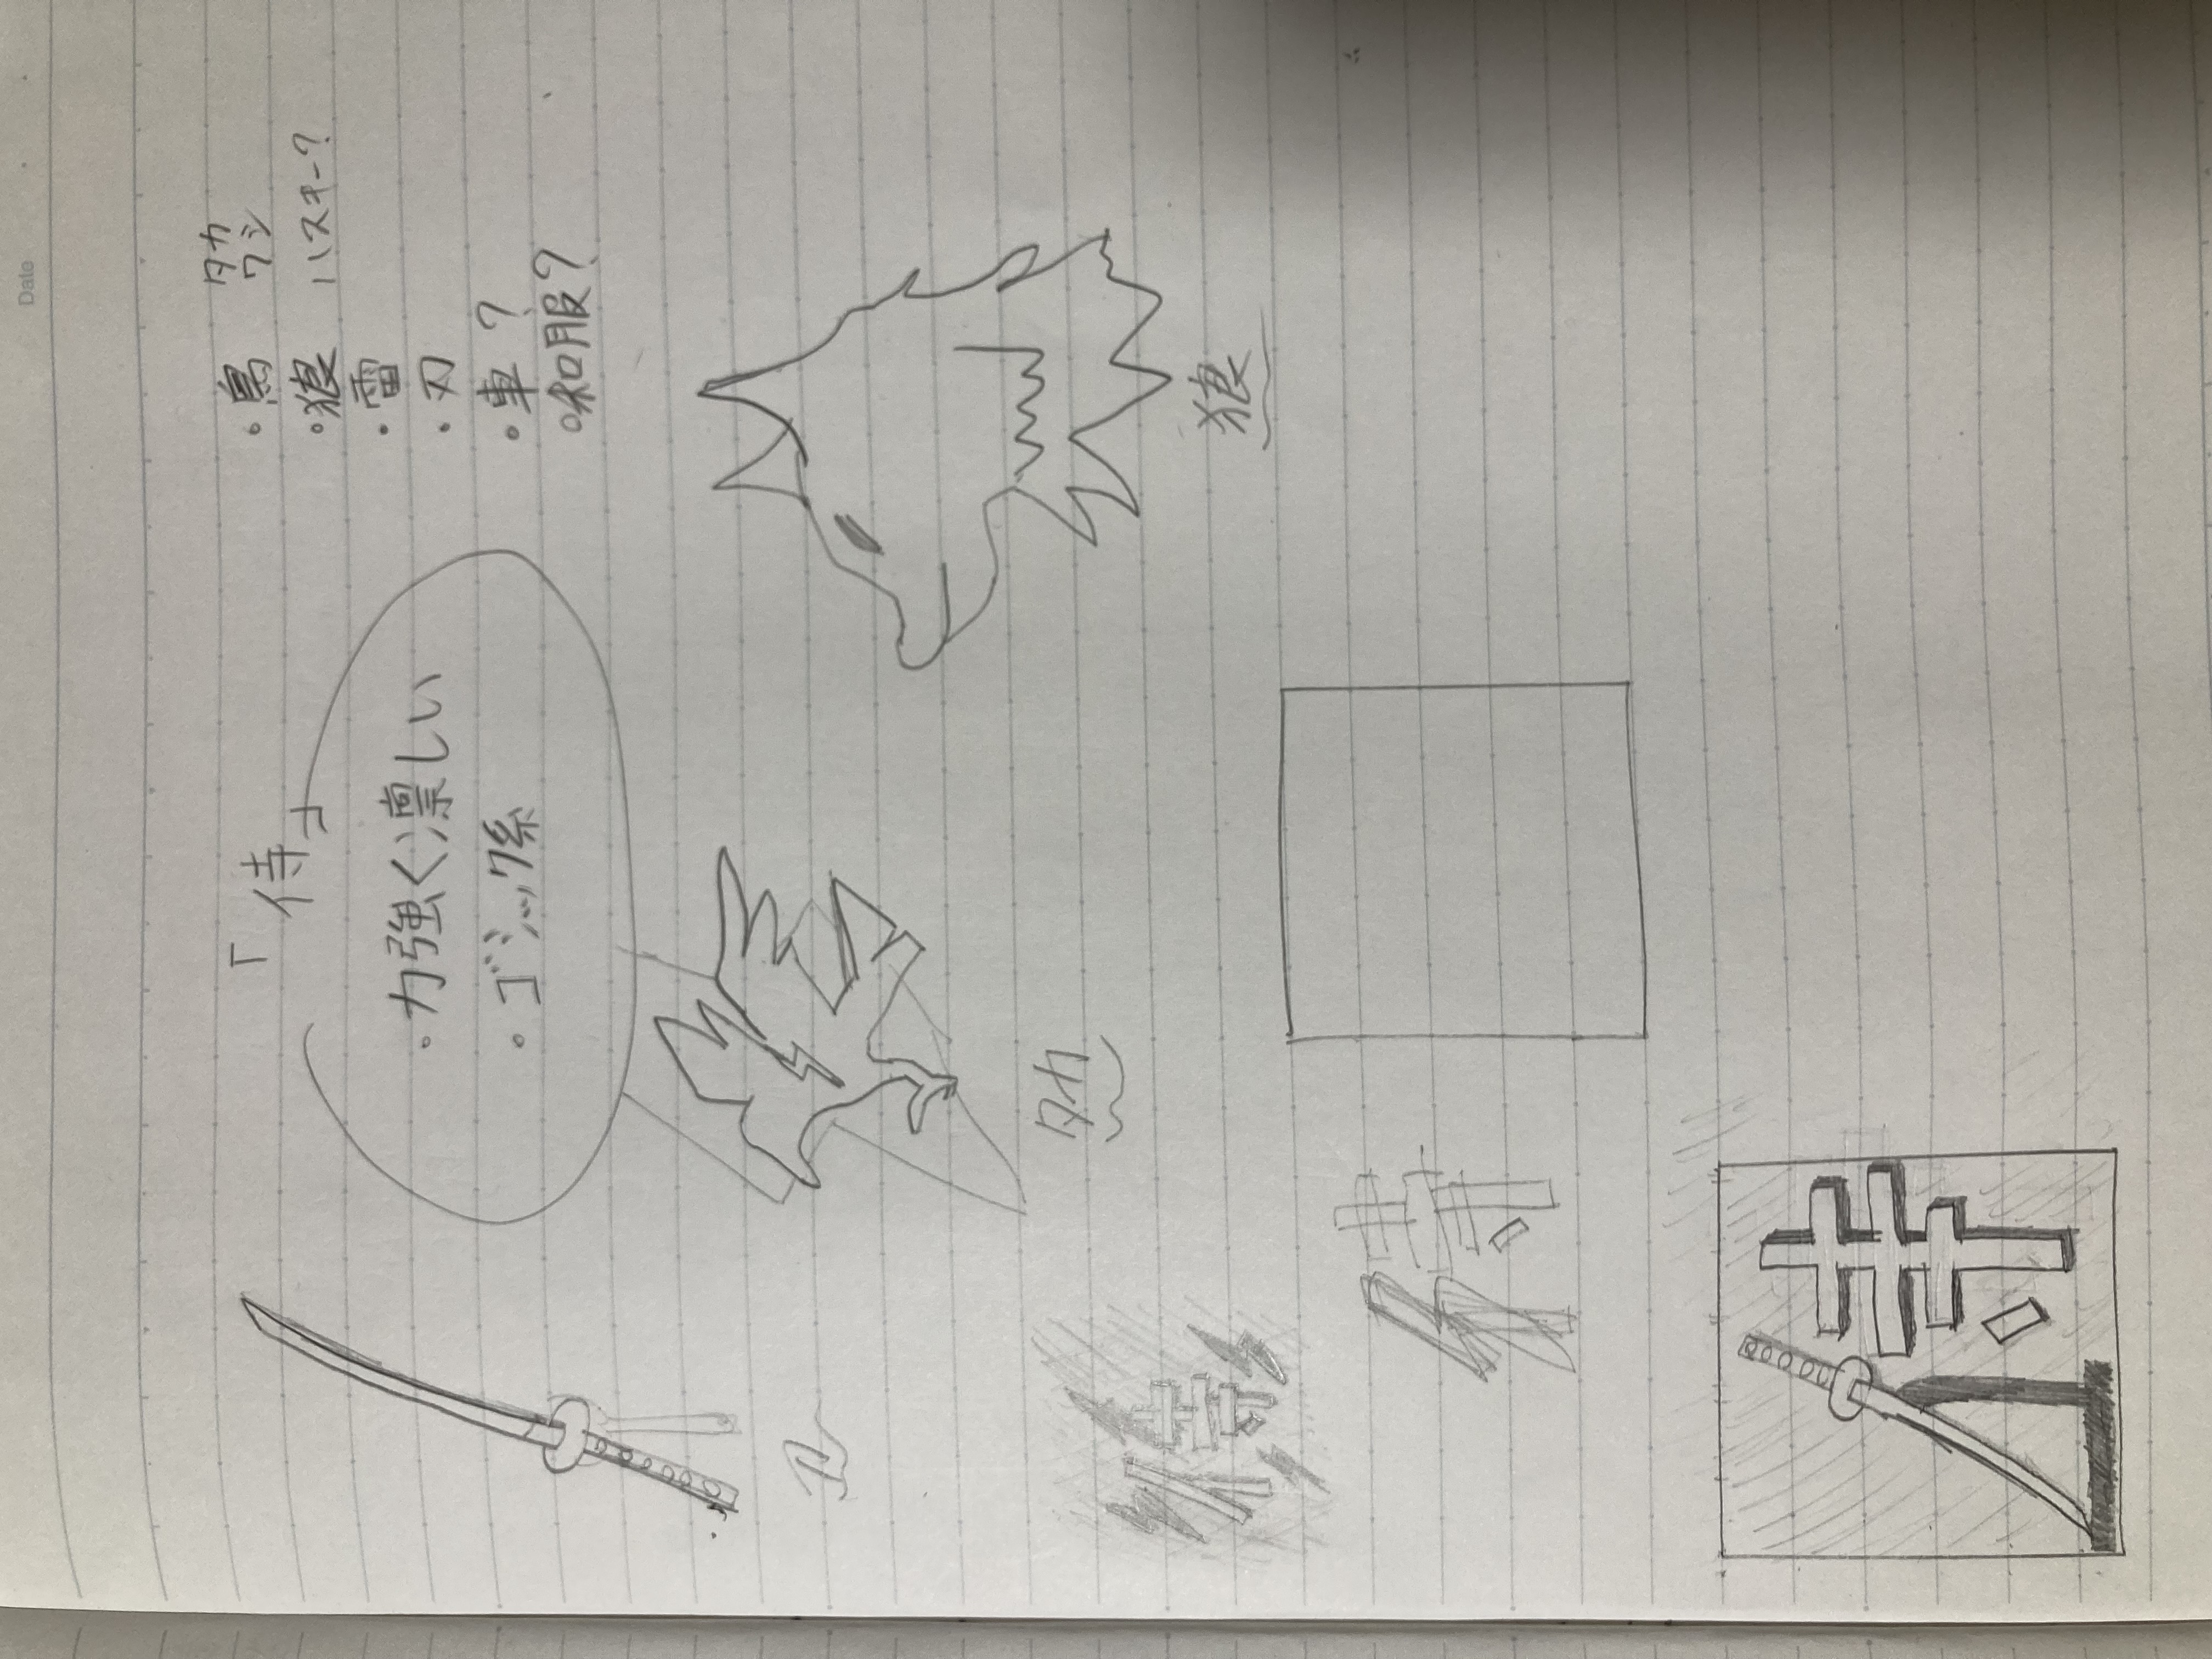 Date
「侍」
・力強く凛しい
・ゴシック系
・鳥 タカ
ワシ
・狼 ハスキー?
・雷
・刃
・車?
・和服?
刀
タカ
狼
侍
侍
侍